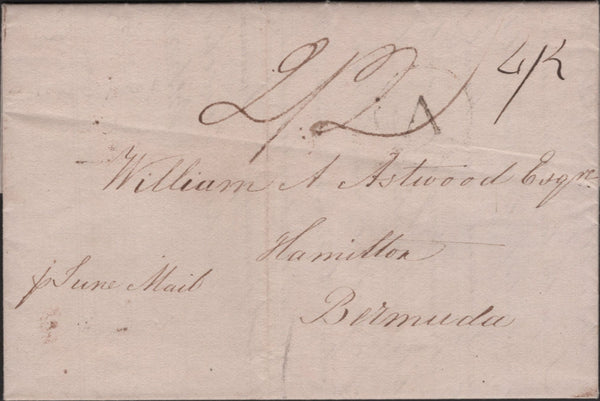 2/2 4/K
A
William A Astwood Esqre
Hamilton
p June Mail
Bermuda